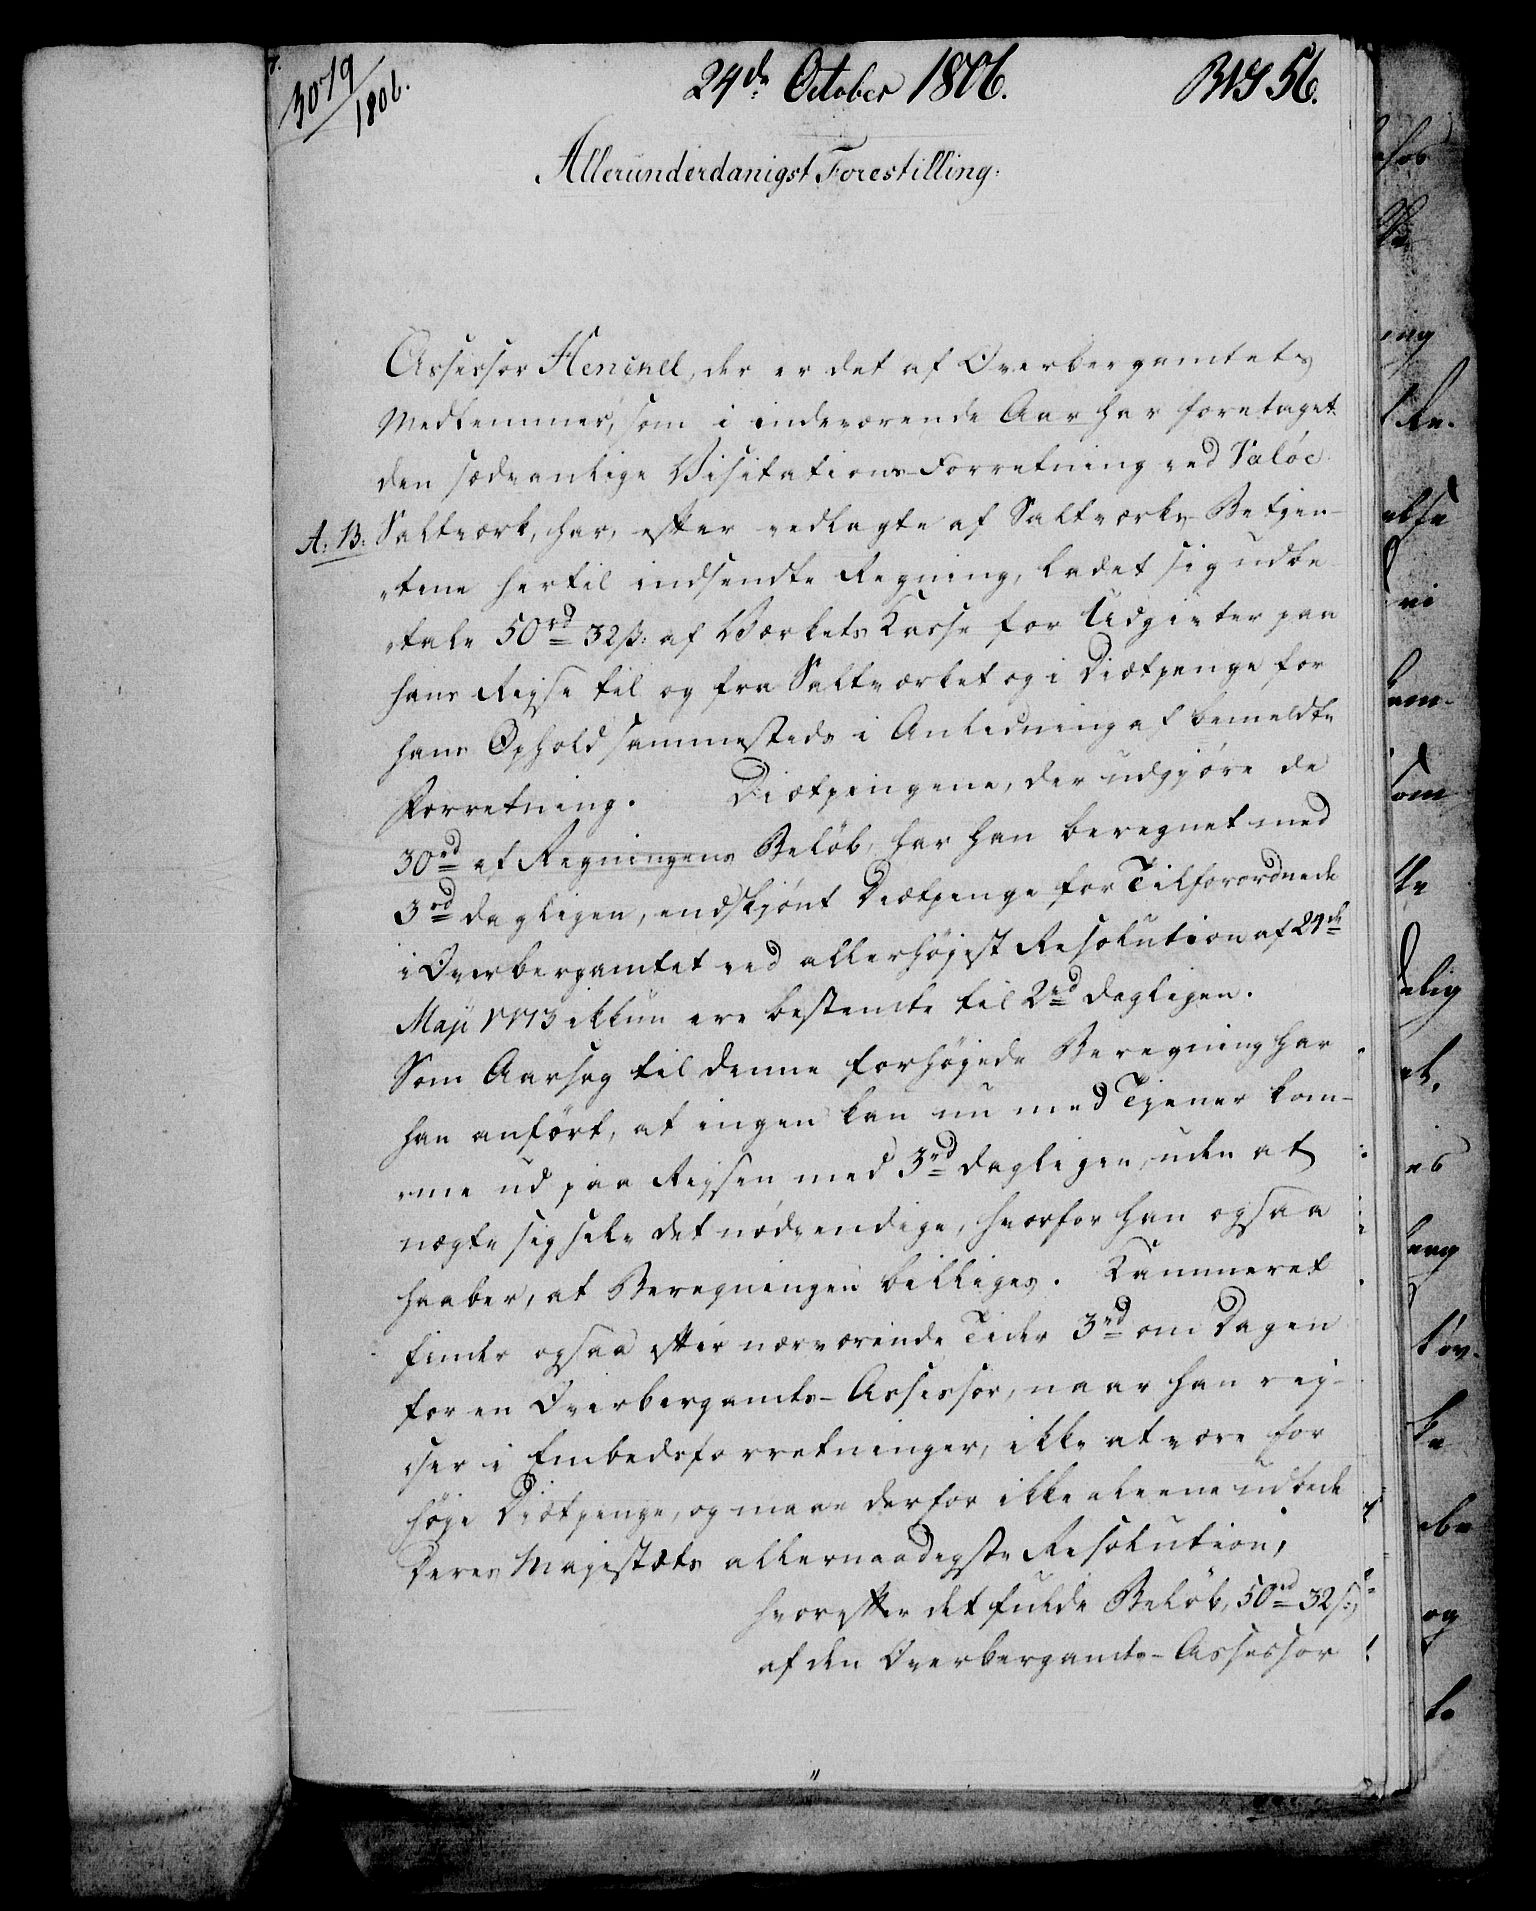 3079/1806.
24de October 1806.
Allerunderdanigst Forestilling.
Assessor Henckel, der er det af Overbergamtets
Medlemmer, som i indeværende Aar har foretaget
den sædvanlige Visitations-Forretning ved Valöe
A. B. Saltværk, har, efter vedlagte af Saltværks Betjen-
tene hertil indsendte Regning, ladet sig udbe-
tale 50rd 32ß. af Værkets Kasse for Udgivter paa
hans Rejse til og fra Saltværket og i Diætpenge for
hans Ophold sammesteds i Anledning af bemeldte
Forretning. Diætpengene, der udgjøre de
30rd af Regningens Beløb, har han beregnet med
3rd dagligen, endskjönt Diætpenge for Tilforordnede
i Overbergamtet ved allerhöjest Resolution af 24de
Maji 1773 ikkun ere bestemte til 2rd dagligen.
Som Aarsag til denne forhöjede Beregning har
han anfört, at ingen kan nu med Tjener kom-
me ud paa Rejsen med 3rd dagligen, uden at
nægte sig selv det nödvendige, hvorfor han ogsaa
haaber, at Beregningen billiges. Kammeret
finder ogsaa efter nærværende Tider 3rd om Dagen
for en Overbergamts-Assessor, naar han rej-
ser i Embedsforretninger, ikke at være for
höje Diætpenge, og maae derfor ikke aleene udbede
Deres Majestæts allernaadigste Resolution,
hvorefter det fulde Belöb, 50rd 32ß,
af den Overbergamts-Assessor